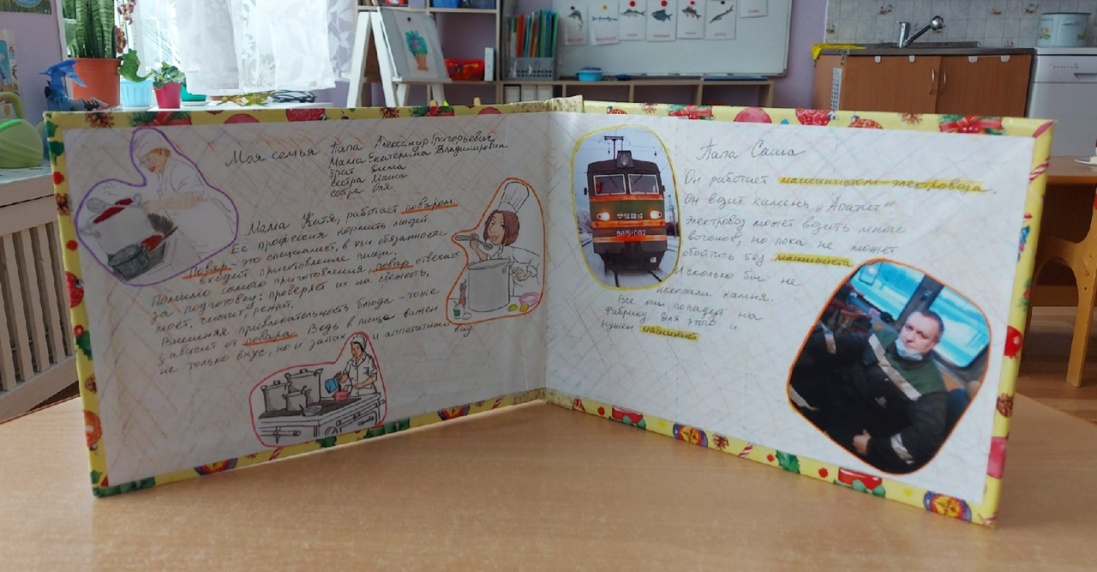 Моя семья Папа Александр Григорьевич
Мама Екатерина Владимировна
брат Дима
сестра
сестра Оля
Мама Катя, работает поваром.
Её профессия кормить людей.
Повар - это специалист, в чьи обязанности
входит приготовление пищи.
Помимо самого приготовления повар отвечает
за подготовку: проверяет их на свежесть,
моет, чистит, режит.
Внешняя привлекательность блюда - тоже
зависит от повара. Ведь в пище важен
не только вкус, но и запах и аппетитный вид.
ВЛ15-007
Папа Саша
Он работает машинистом электровоза.
Он возит камень "Апатит"
Электровоз может возить много
вагонов, но пока не может
обойтись без машиниста
И сколько бы не
ископали камня.
Все они попадут на
Фабрику для этого и
нужен машинист